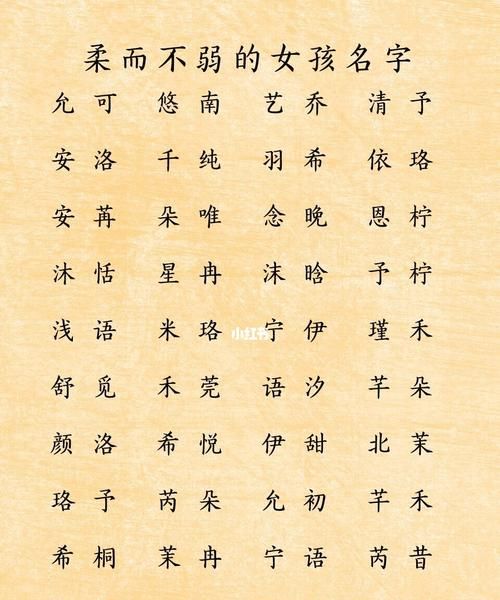 柔而不弱的女孩名字
允可 悠南 艺乔 清予
安洛 千纯 羽希 依珞
安苒 朵唯 念晚 恩柠
沐恬 星冉 沫晗 予柠
浅语 米珞 宁伊 瑾禾
小红书
舒觅 禾莞 语汐 芊朵
颜洛 希悦 伊甜 北茉
珞予 芮朵 允初 芊禾
希桐 茉冉 宁语 芮昔